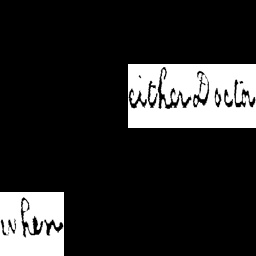 either Doctor
when